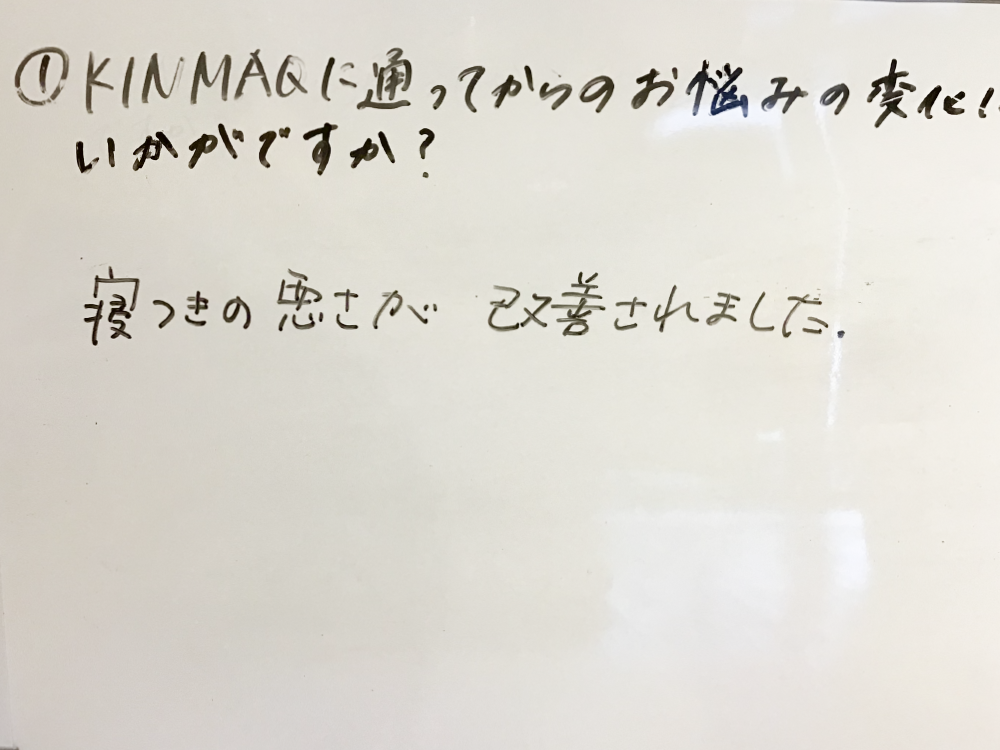 ①KINMAQに通ってからのお悩みの変化
いかがですか?
寝つきの悪さが 改善されました.